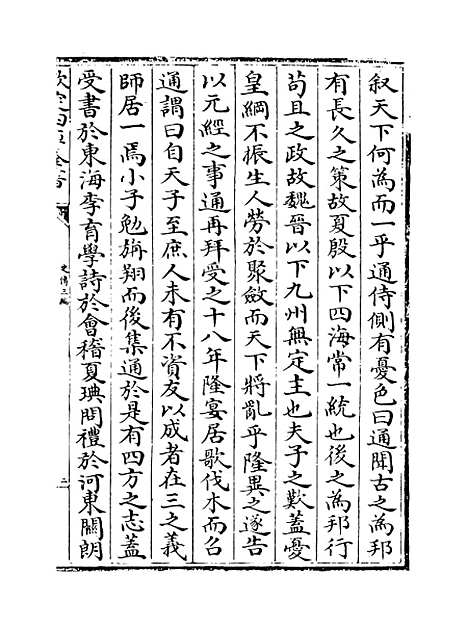 叙天下何為而一乎通侍側有憂色曰通聞古之為邦
有長久之策故夏殷以下四海常一統也後之為邦行
苟且之政故魏晉以下九州無定主也夫子之歎蓋憂
皇綱不振生人勞於聚斂而天下將亂乎隆異之遂告
以元經之事通再拜受之十八年隆宴居歌伐木而召
通謂曰自天子至庶人未有不資友以成者在三之義
師居一焉小子勉旃翔而後集通於是有四方之志蓋
受書於東海李育學詩於會稽夏琠問禮於河東關朗
欽定四庫全書
二